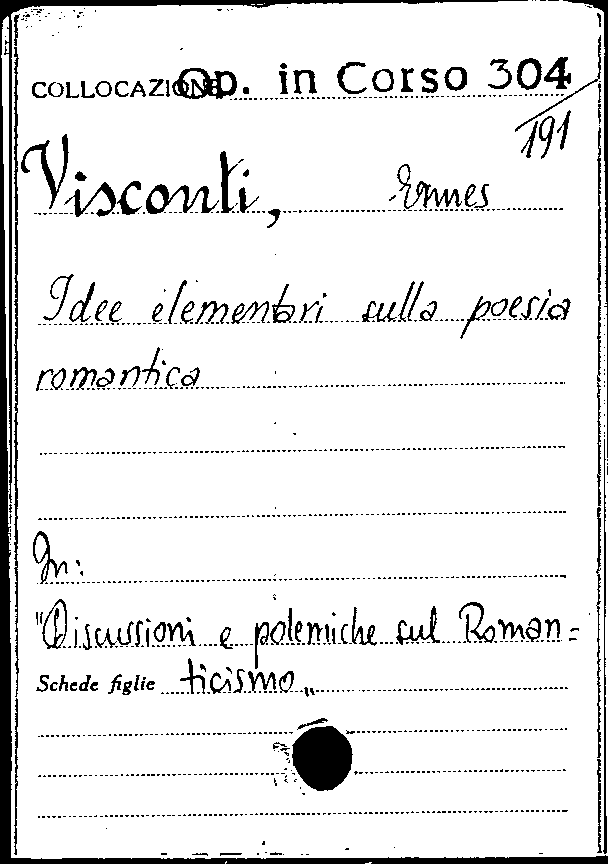 COLLOCAZIONE Op. in Corso 304
/191
Visconti, Ermes
Idee elementari sulla poesia
romantica
In:
"Discussioni e polemiche sul Roman=
Schede figlie ticismo„